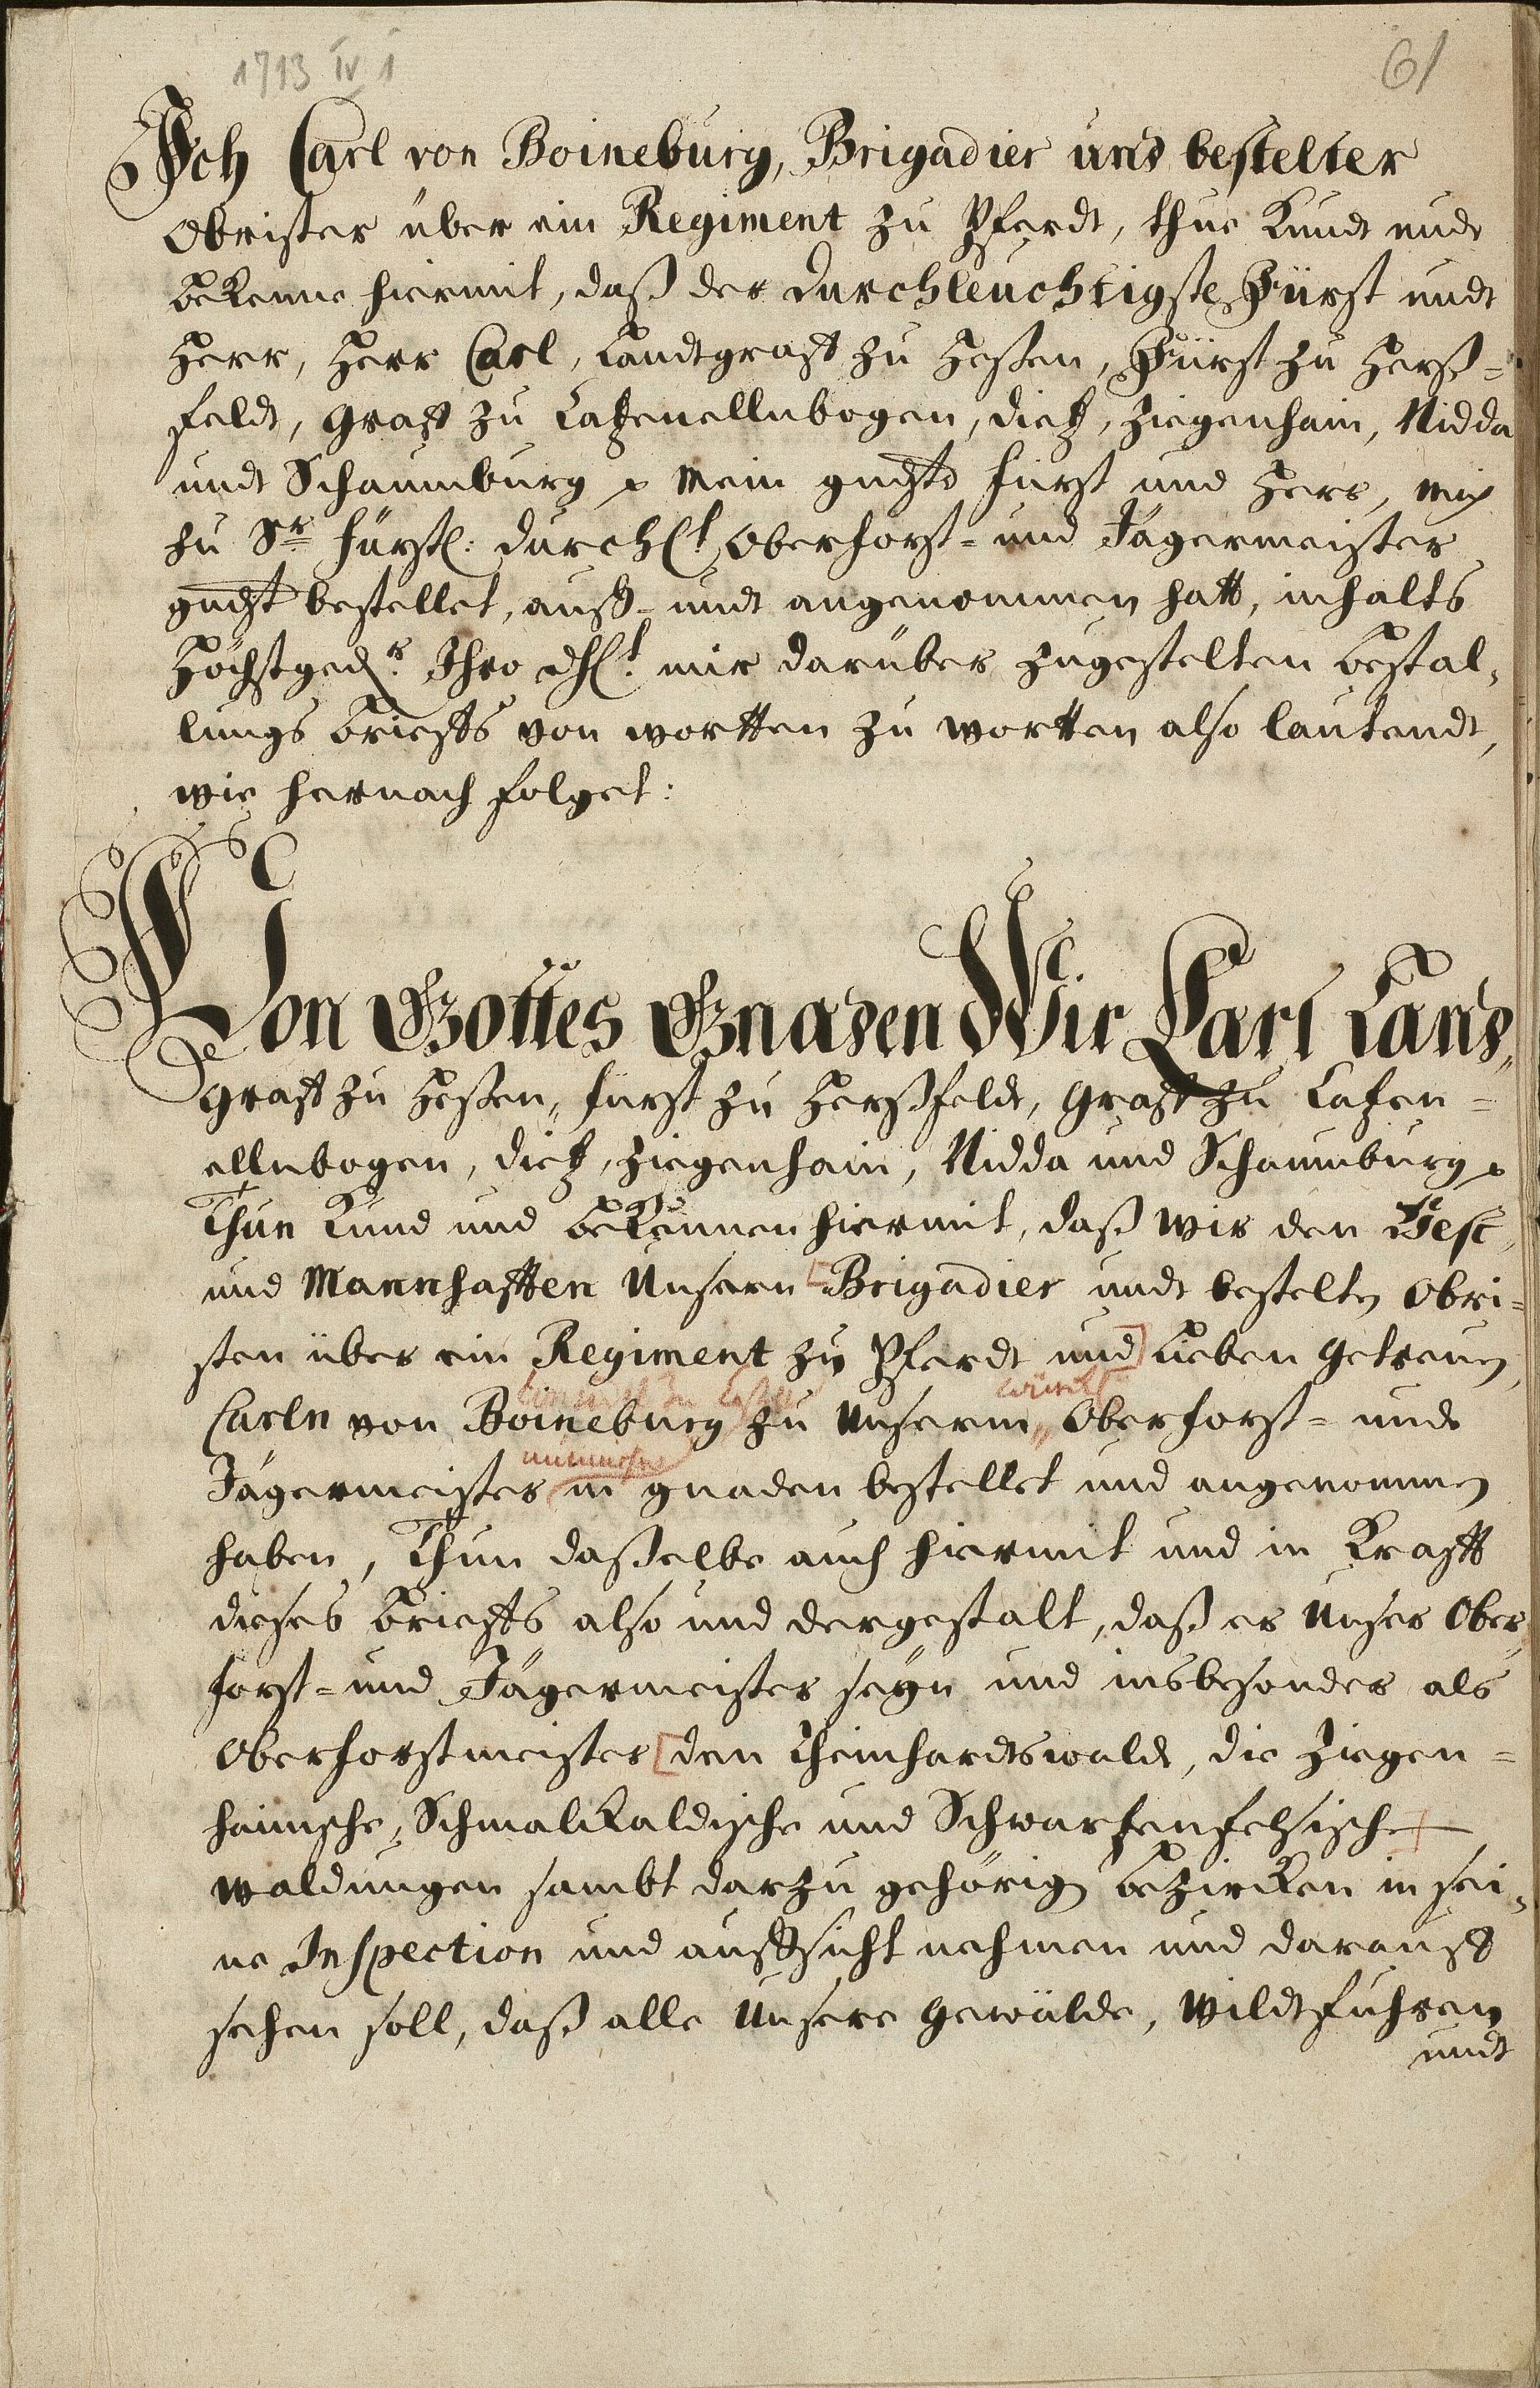 1713 IV 1
61
Ich Carl von Boineburg, Brigadier und bestelter
Obrister über ein Regiment zu Pferdt, thue Kundt undt
bekenne hiermit, daß der Durchleuchtigste Fürst undt
Herr, Herr Carl, Landtgraff zu Heßen, Fürst zu Herß=
feldt, Graff zu Catzenellnbogen, Dietz, Ziegenhain, Nidda
undt Schaumburg p Mein gndste Fürst und Herr, mich
zu Sr Fürstl: Durchlt Oberforst= und Jägermeister
gndst bestellet, auff= undt angenommen hatt, inhalts
Höchstgedr Ihro dhlt mir darüber zugestelten bestal,
lungs brieffs von wortten zu wortten also lautendt,
wie hernach folget:
Von Gottes Gnaden Wir Carl Land,,
Graff zu Heßen, Fürst zu Herßfeldt, Graff zu Catzen=
ellnbogen, Dietz, Ziegenhain, Nidda und Schaumburg p
Thun Kund und bekennen hiermit, daß wir den Vest,
und Mannhafften Unsern Brigadier undt bestelten Obri=
sten über ein Regiment zu Pferdt und Lieben Getreuen,
Carln von Boineburg zu Unserm Oberforst= undt
Jägermeister in gnaden bestellet und angenommen
haben, Thun daßelbe auch hiermit und in Krafft
dieses brieffs also und dergestalt, daß er Unser Ober,,
forst= und Jägermeister seyn und insbesonder als
Oberforstmeister den Rheinhardtswaldt, die Ziegen=
hainische, Schmalkaldische und Schwartzenfelsische
Waldungen sambt darzu gehörigen bezircken in sei,
ne Inspection und auffsicht nehmen und darauff
sehen soll, daß alle Unsere Gewälde, Wildtfuhren
undt